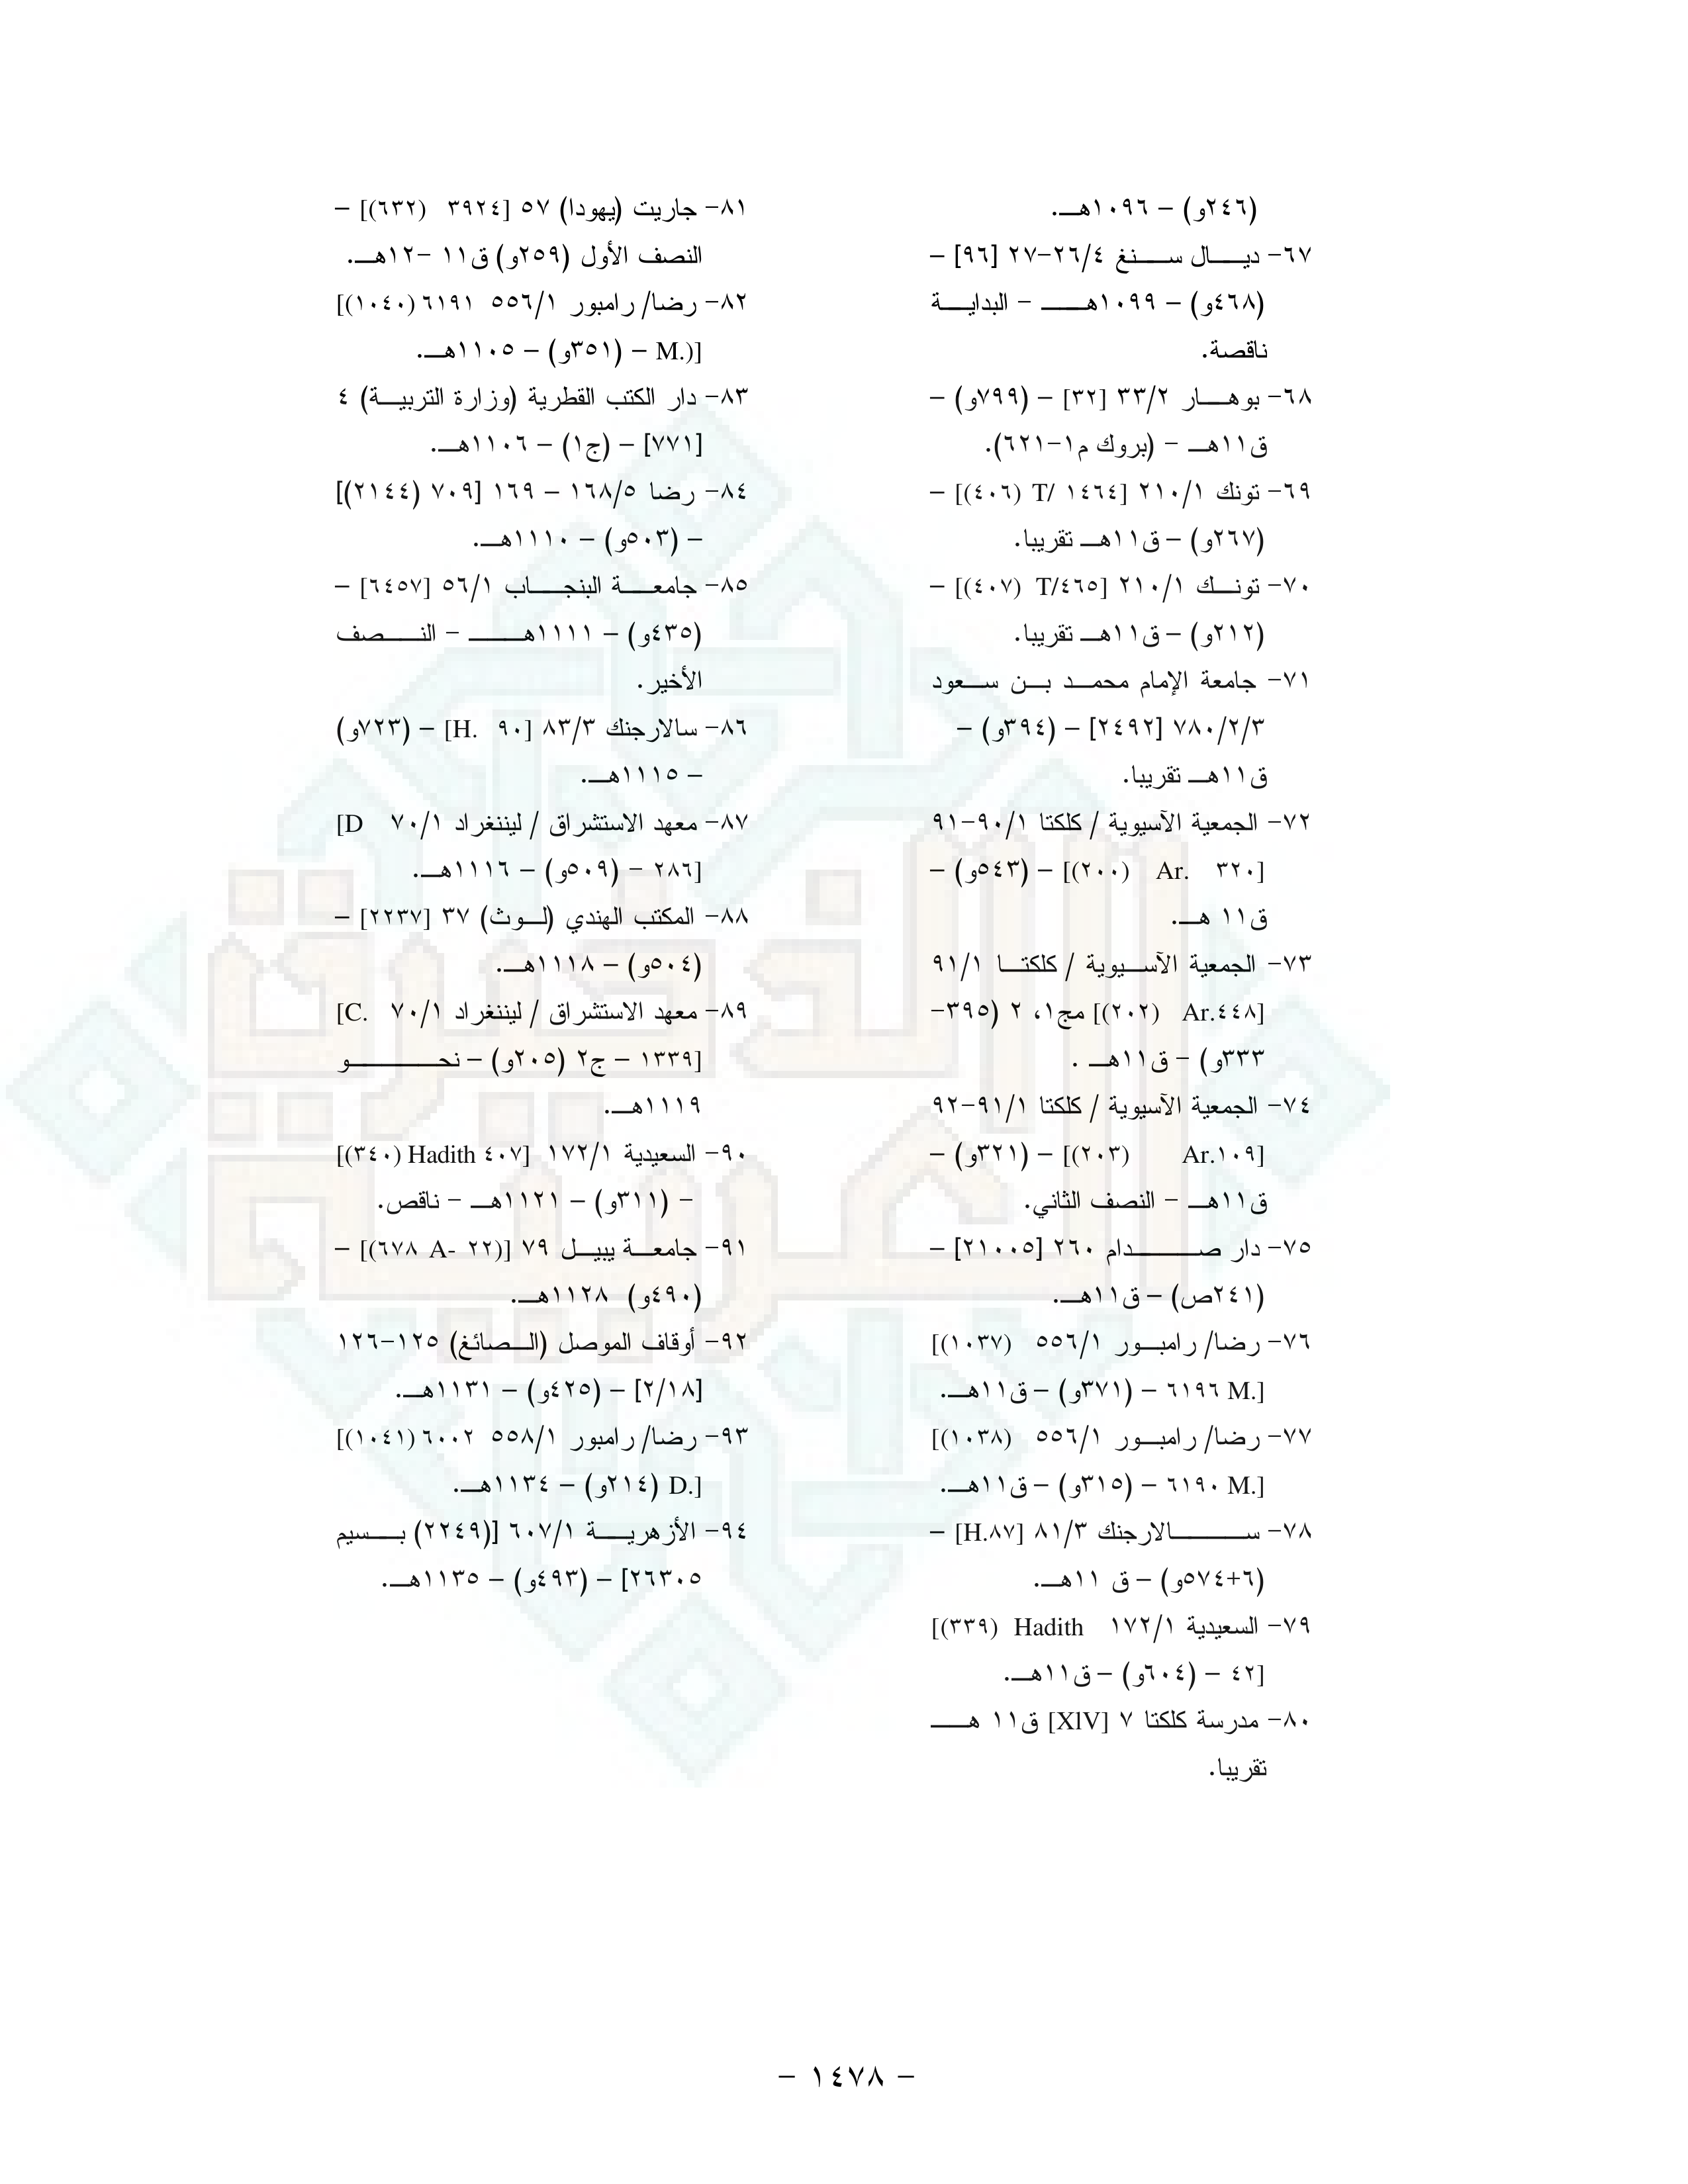 (٢٤٦و) – ١٠٩٦هـ.
٦٧- ديـــال ســـنغ ٢٦/٤-٢٧ [٩٦] –
(٤٦٨و) – ١٠٩٩هـــ - البدايـــة
ناقصة.
٦٨- بوهـــار ٣٣/٢ [٣٢] – (٧٩٩و) –
ق١١هـ - (بروك م١-٦٢١).
٦٩- تونك ٢١٠/١ [١٤٦٤ /T (٤٠٦)] –
(٢٦٧و) – ق١١هـ تقريبا.
٧٠- تونـــك ٢١٠/١ [T/٤٦٥ (٤٠٧)] –
(٢١٢و) – ق١١هـ تقريبا.
٧١- جامعة الإمام محمـــد بـــن ســـعود
٧٨٠/٢/٣ [٢٤٩٢] – (٣٩٤و) –
ق١١هـ تقريبا.
٧٢- الجمعية الآسيوية / كلكتا ٩٠/١-٩١
[٣٢٠ Ar. (٢٠٠)] – (٥٤٣و) –
ق١١ هـ.
٧٣- الجمعية الآســـيوية / كلكتـــا ٩١/١
[Ar.٤٤٨ (٢٠٢)] مج١، ٢ (٣٩٥-
٣٣٣و) – ق١١هـ .
٧٤- الجمعية الآسيوية / كلكتا ٩١/١-٩٢
[Ar.١٠٩ (٢٠٣)] – (٣٢١و) –
ق١١هـ - النصف الثاني.
٧٥- دار صـــــدام ٢٦٠ [٢١٠٠٥] –
(٢٤١ص) – ق١١هـ.
٧٦- رضا/ رامبـــور ٥٥٦/١ [(١٠٣٧)
M. ٦١٩٦] – (٣٧١و) – ق١١هـ.
٧٧- رضا/ رامبـــور ٥٥٦/١ [(١٠٣٨)
M. ٦١٩٠] – (٣١٥و) – ق١١هـ.
٧٨- ســـــالارجنك ٨١/٣ [H.٨٧] –
(٦+٥٧٤و) – ق ١١هـ.
٧٩- السعيدية ١٧٢/١ [(٣٣٩) Hadith
٤٢] – (٦٠٤و) – ق١١هـ.
٨٠- مدرسة كلكتا ٧ [XlV] ق١١ هـــ
تقريبا.
٨١- جاريت (يهودا) ٥٧ [٣٩٢٤ (٦٣٢)] –
النصف الأول (٢٥٩و) ق١١ -١٢هـ.
٨٢- رضا/ رامبور ٥٥٦/١ [(١٠٤٠) ٦١٩١
M.)] – (٣٥١و) – ١١٠٥هـ.
٨٣- دار الكتب القطرية (وزارة التربيـــة) ٤
[٧٧١] – (ج١) – ١١٠٦هـ.
٨٤- رضا ١٦٨/٥ – ١٦٩ [٧٠٩ (٢١٤٤)]
– (٥٠٣و) – ١١١٠هـ.
٨٥- جامعـــة البنجـــاب ٥٦/١ [٦٤٥٧] –
(٤٣٥و) – ١١١١هـــ - النـــصف
الأخير.
٨٦- سالارجنك ٨٣/٣ [٩٠ H.] – (٧٢٣و)
– ١١١٥هـ.
٨٧- معهد الاستشراق / ليننغراد ٧٠/١ [D
٢٨٦] - (٥٠٩و) – ١١١٦هـ.
٨٨- المكتب الهندي (لـــوث) ٣٧ [٢٢٣٧] –
(٥٠٤و) – ١١١٨هـ.
٨٩- معهد الاستشراق / ليننغراد ٧٠/١ [C.
١٣٣٩] – ج٢ (٢٠٥و) – نحـــــو
١١١٩هـ.
٩٠- السعيدية ١٧٢/١ [٤٠٧ Hadith (٣٤٠)]
- (٣١١و) – ١١٢١هـ - ناقص.
٩١- جامعـــة ييبيـــل ٧٩ [(٢٢ -A ٦٧٨)] –
(٤٩٠و) ١١٢٨هـ.
٩٢- أوقاف الموصل (الـــصائغ) ١٢٥-١٢٦
[٢/١٨] – (٤٢٥و) – ١١٣١هـ.
٩٣- رضا/ رامبور ٥٥٨/١ [(١٠٤١) ٦٠٠٢
D.] (٢١٤و) – ١١٣٤هـ.
٩٤- الأزهريـــة ٦٠٧/١ [(٢٢٤٩) بـــسيم
٢٦٣٠٥] – (٤٩٣و) – ١١٣٥هـ.
الذخيرة
العربية
- ١٤٧٨ -